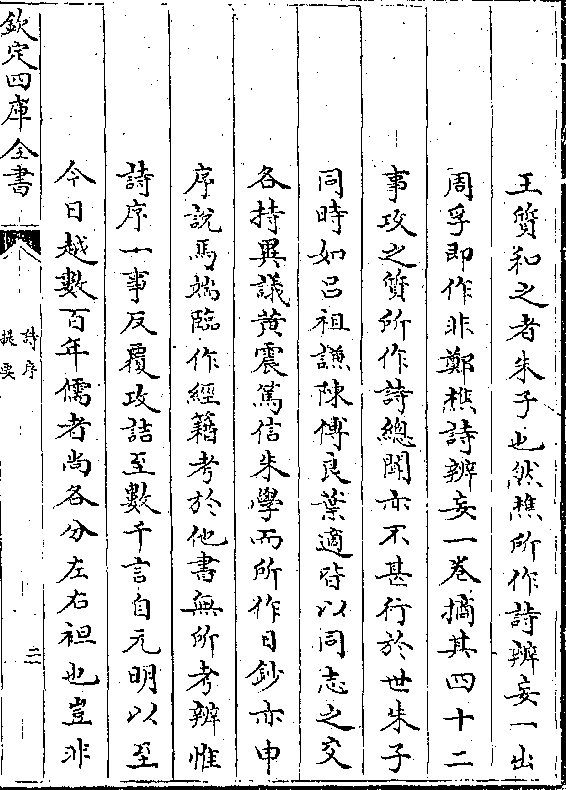 王質和之者朱子也然樵所作詩辨妄一出
周孚即作非鄭樵詩辨妄一卷摘其四十二
事攻之質所作詩總聞亦不甚行於世朱子
同時如呂祖謙陳傅良葉適皆以同志之交
各持異議黄震篤信朱學而所作日鈔亦申
序說馬端臨作經籍考於他書無所考辨惟
詩序一事反覆攻詰至數千言自元明以至
今日越數百年儒者尚各分左右袒也豈非
欽定四庫全書
詩序
提要
二